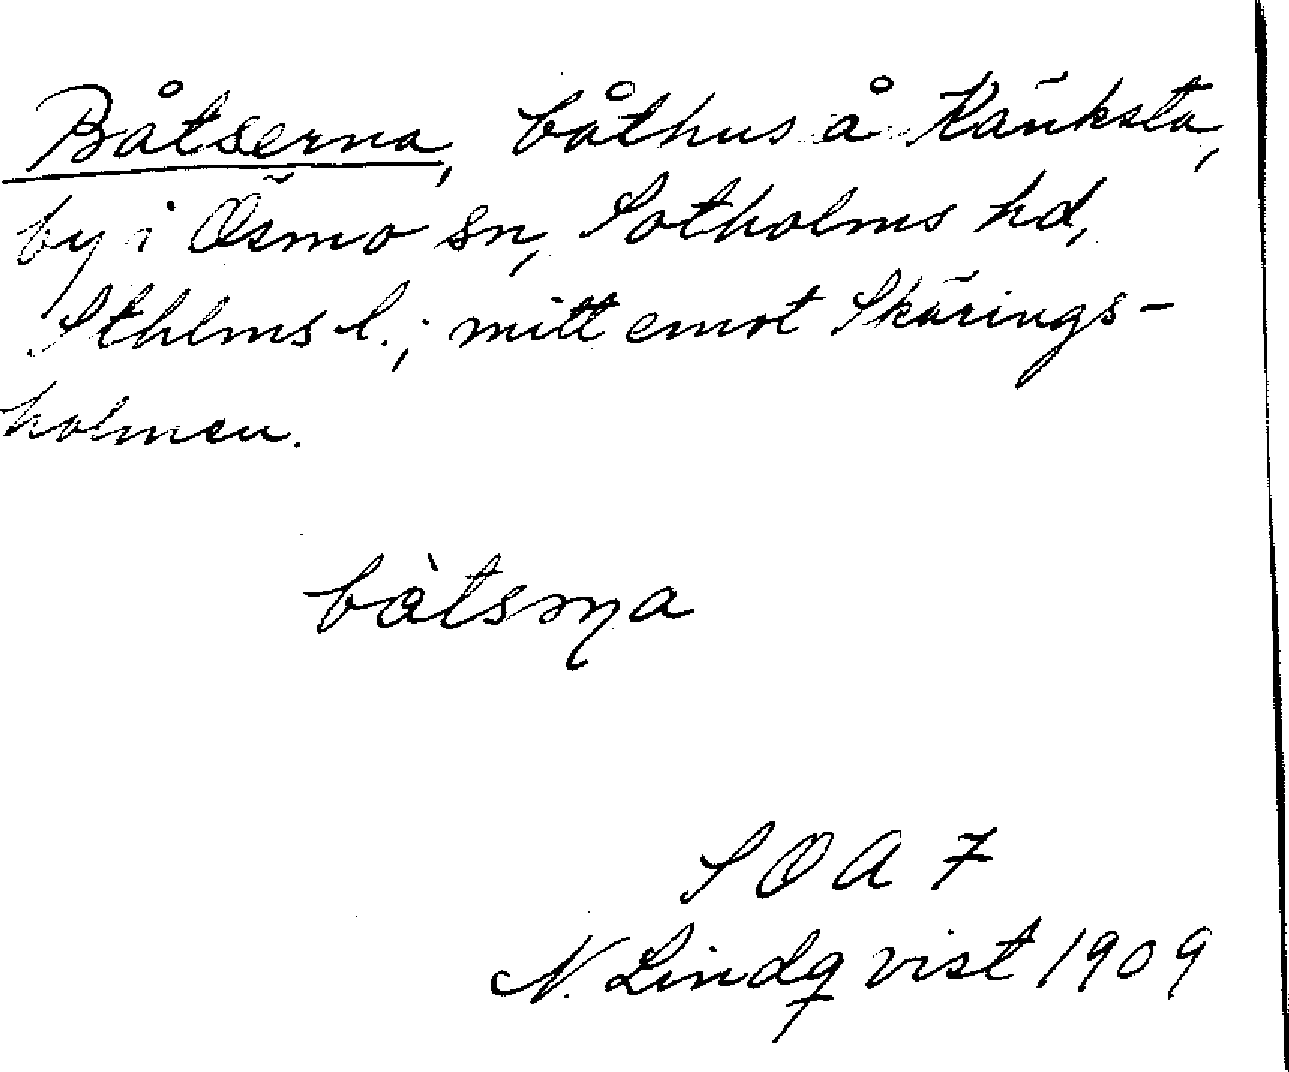 Båtserna, båthus å Känksta,
by i Ösmo sn, Sotholms hd,
Sthlms l.; mitt emot Skärings-
holmen.
bàtsɳa
SOA 7
N. Lindqvist 1909